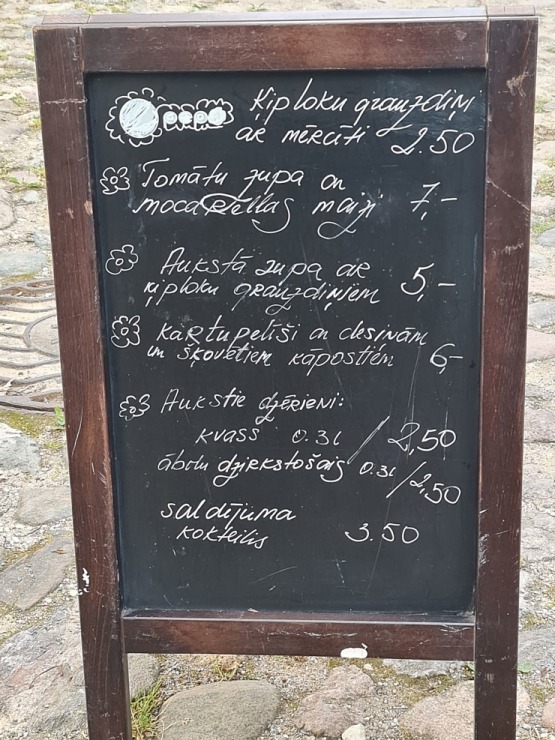 pepo
Ķiploku grauzdiņi
ar mērcīti 2.50
Tomātu zupa ar
mocarellas maizi 7,-
Aukstā zupa ar
ķiploku grauzdiņiem 5,-
kartupelīši ar desiņām
un skovētiem kāpostiem 6,-
Aukstie dzērieni:
kvass 0.3l / 2,50
ābolu dzirkstošais 0.3l / 2,50
saldējuma
kokteilis 3.50